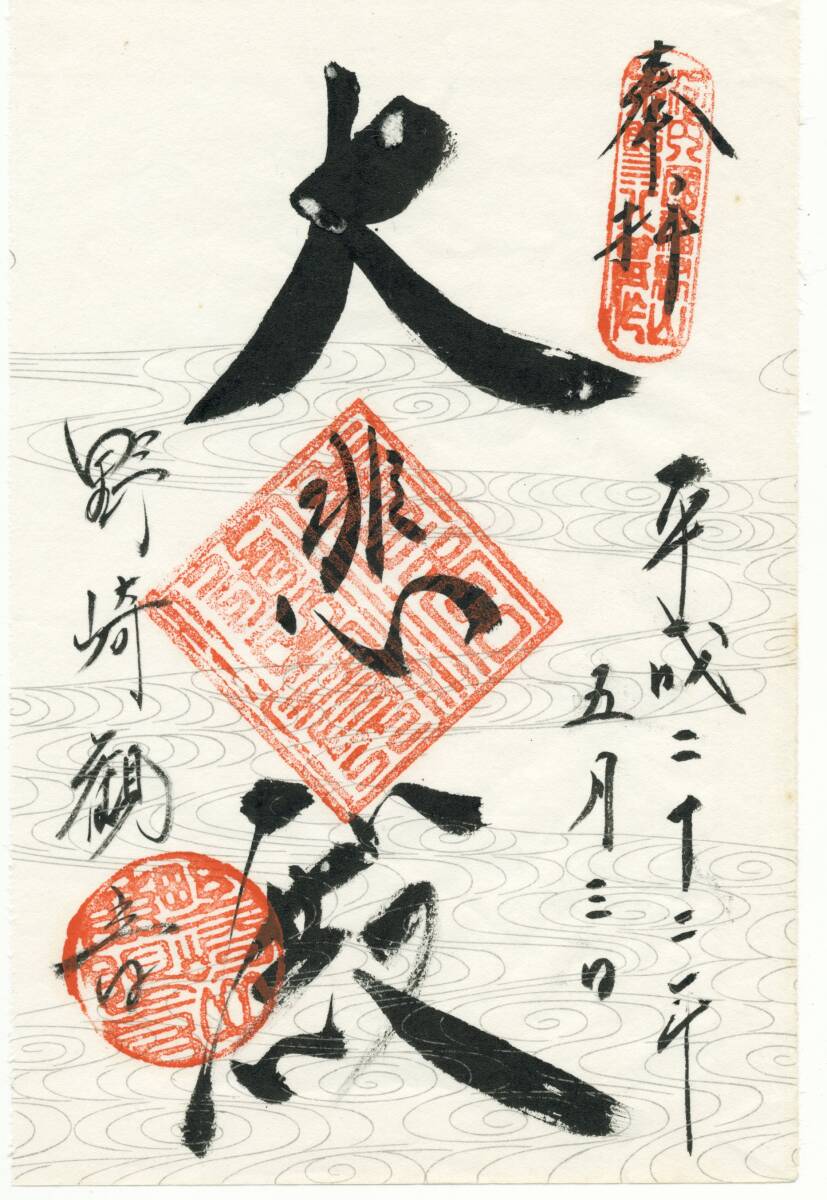 奉拝
平成二十二年
五月三日
大悲殿
野崎観音